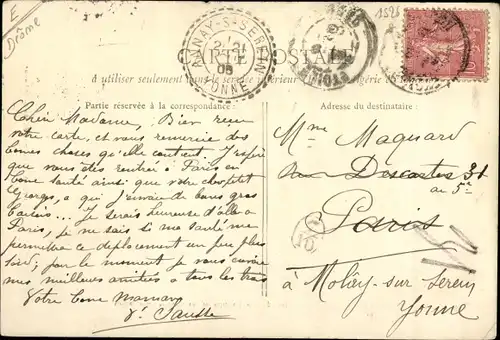 E
Drôme
1526
CARTE POSTALE
ANNAY-S-SEREIN
YONNE
à utiliser seulement dans le service intérieur
Partie réservée à la correspondance:
Adresse du destinataire:
Chère Madame, Bien reçu
votre carte, et vous remercie des
bonnes choses qu'elle contient. J'espère
que vous êtes rentrés à Paris en
bonne santé ainsi que votre cher petit
Georges, à qui j'envoie de bons gros
baisers... Je serais heureuse d'aller à
Paris, je ne sais si ma santé me
permettra ce déplacement un peu plus
tard; pour le moment je vous envoie
mes meilleurs amitiés à tous les trois
Votre bonne maman
Vve
Mme Maquard
rue Descartes 31
au 5e
Paris
à Molay-sur Serein
Yonne